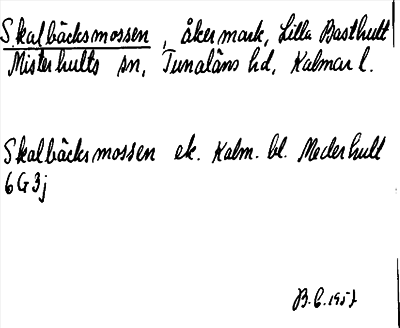 Skalbäcksmossen, åkermark, Lilla Basthult
Misterhults sn, Tunaläns hd, Kalmar l.
Skalbäcksmossen ek. Kalm. bl. Mederhult
6G3j